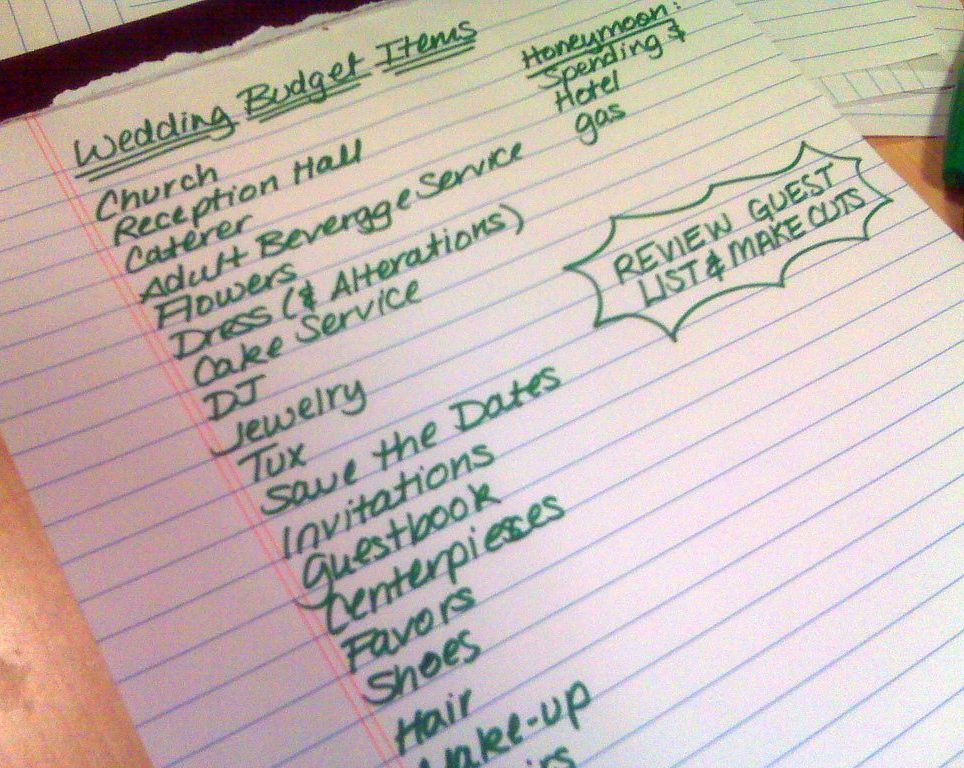 Wedding Budget Items
Church
Reception Hall
Caterer
Adult Beverage Service
Flowers
Dress (& Alterations)
Cake Service
DJ
Jewelry
Tux
Save the Dates
Invitations
Guestbook
Centerpieces
Favors
Shoes
Hair
Make-up
Honeymoon:
Spending &
Hotel
gas
REVIEW GUEST
LIST & MAKE CUTS